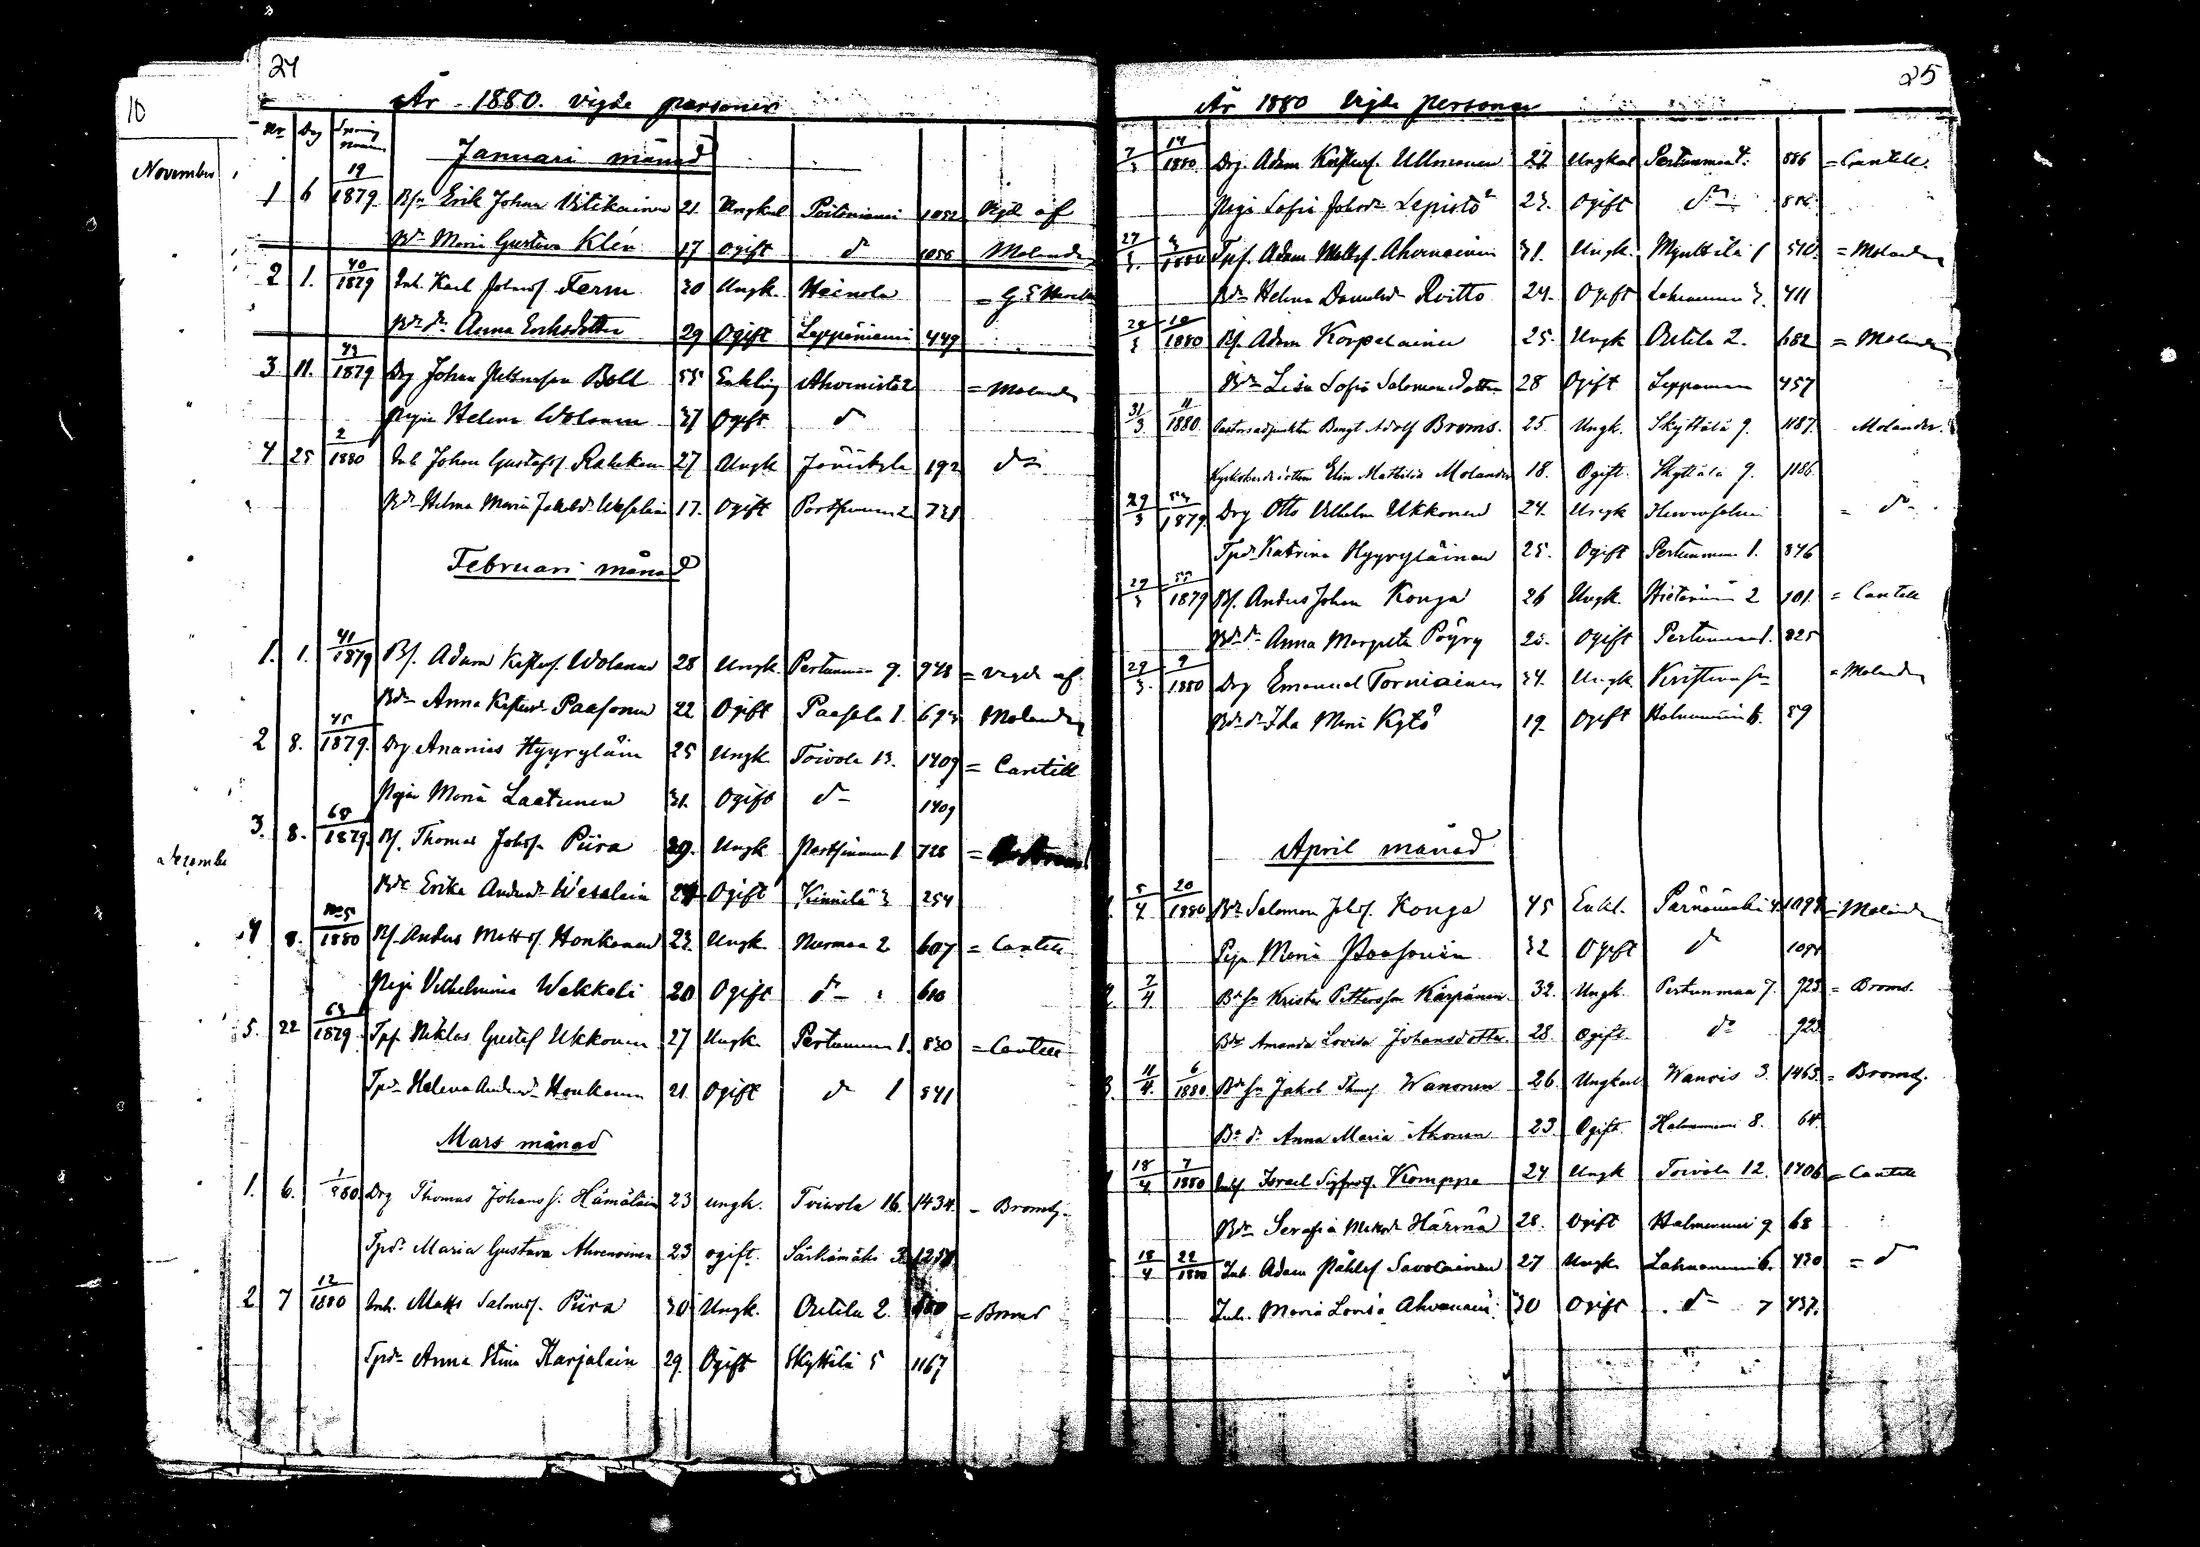 10
November
Decembe
24
År 1880. Vigde personer
Nr Dag
Januari månad
1 6 19/1879 Bsn Erik Johan Vitikainen 21 Ungkarl Poitiniemi 1052 Vigd af
Bdr Maria Gustava Klén 17 Ogift do 1056 Molander
2 1. 40/1879 Inh. Karl Johansf Ferm 30 Ungk. Heinola = G. E.
Bdr dr Anna Eriksdotter 29 Ogift Leppäniemi 449
3 11. 43/1879 Drg Johan Boll 55 Enkling Ahvenisto 2 = Molander
Pigan Helena Wolanen 37 Ogift do
4. 25 2/1880 Inh Johan Gustafsf 27 Ungk 192 do
Bdr Helena Maria Jakobdr 17. Ogift 721
Februari månad
1. 1. 41/1879 Bf. Adam Kristersf. Wolanen 28 Ungk. Pertunmaa 9. 928 = Vigde af
Bdr Anna Kristersdr Paasonen 22 Ogift Paasola 1. 693 Molander
2 8. 45/1879. Drg Ananias Hyyryläin 25 Ungk. Toivola 13. 1409 = Cantell
Pigan Maria Laatunen 31. Ogift do 1409
3. 8. 68/1879 Bf. Thomas Johsfn Piira 29. Ungk 1 728 =
Bdr Erika Andersdr Wesalain 24 Ogift Kinnilä 3 254
4 8. No 5/1880 Bf. Anders Mattsf. Honkanen 23. Ungk. Nurmaa 2 607 = Cantell
Pigan Vilhelmina Wakkeli 20 Ogift do 610
5. 22 63/1879. Tpf Niklas Gustaf Ukkonen 27 Ungk. Pertunmaa 1. 830 = Cantell
Tpdr Helena Andersdr Honkanen 21. Ogift do 1 841
Mars månad
1. 6. 1/880 Drg Thomas Johansf: Hämäläin 23 ungk. Toivola 16. 1434. = Bromg.
Tpdr Maria Gustava Ahvenainen 23 ogift. Särkämäki 3
2 7 12/1880 Inh. Matts Salomsf. Piira 30 Ungk. Ortila 2. 680 = Broms
Tpdr Anna Stina Karjalain 29. Ogift Skyttälä 5 1167
25
År 1880 Vigde personer
7/3 14/1880 Drg Adam Kristersf. Ukkonen 27 Ungkarl Pertunmaa 4. 886 = Cantell.
Piga Sofia Johsdr Lepistö 23. Ogift do 886
27/3. 1880 Tpf. Adam Mattsf. Ahvenainen 31. Ungk. Mynttilä 1 510. = Molander
Bdr Helena Danielsdr Roitto 24. Ogift Lahnaniemi 3. 411
28/3 10/1880 Bf. Adam Korpelainen 25. Ungk Ortila 2. 682 = Molander
Bdr Lisa Sofia Salomonsdotter 28 Ogift Leppäniemi 457
31/3. 11/1880. Pastorsadjunkten Bengt Adolf Broms. 25. Ungk. Skyttälä 9. 1187. Molander.
Kyrkoherdedottern Elin Mathilda Molander 18. Ogift. Skyttälä 9. 1186
29/3 54/1879. Drg Otto Vilhelm Ukkonen 24. Ungk = do
Tpdr Katrina Hyyryläinen 25. Ogift Pertunmaa 1. 846
29/3 55/1879 Bf. Anders Johan Konga 26 Ungk. Hietaniemi 2 101. = Cantell
Bdr dr Anna Margreta Pöyry 25. Ogift Pertunmaa 1. 825
29/3. 9/1880 Drg Emanuel Torniainen 34. Ungk. = Molander
Bdr dr Ida Mari Kytö 19. Ogift Halmeniemi 6. 59
April månad
5/4 20/1880 Bdr Salomon Johsf. Konga 45 Enkl. Pärnämäki 4. 1094. = Molander
Piga Maria Paasonen 32 Ogift do 1094
7/4. Bdsfn Krister Pettersson Kärpänen 32. Ungk. Pertunmaa 7. 923 = Broms.
Bdr Amanda Lovisa Johansdotter 28. Ogift. do 923
11/4. 6/1880. Bdsfn Jakob Thomsf. Wanonen 26. Ungkarl Wanois 3. 1463. = Bromg.
Bdr dr Anna Maria Ahonen 23. Ogift. Halmeniemi 8. 64.
18/4 7/1880 Inhf Israel Sigfridsf. Komppa 24 Ungk Toivola 12. 1406 = Cantell
Bdr Serafia Härmä 28. Ogift Halmeniemi 9 68
18/4 22/1880 Inh. Adam Påhlsf Savolainen 27 Ungk. Lahnaniemi 6. 430 = do
Inh. Maria Lovisa Ahvenain. 30 Ogift do 7 437.